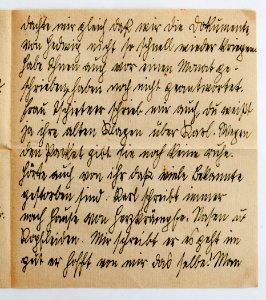 dachte mir gleich daß wir die Dokumente
von Hedwig nicht so schnell wieder kriegen
habe Ihnen auch vor einem Monat ge-
schrieben, haben noch nicht geantwortet.
Frau schrieb mir auch, du weißt
ja ihre alten Klagen über Karl. Wegen
den Packet gibt sie noch keine Ruhe.
Hörte auch von ihr daß viele Bekannte
gestorben sind. Karl schreibt immer
nach Hause von Herzkrämpfe. Nasen u
Kopfleiden. Mir schreibt er es geht im
gut er hofft von mir das selbe! Man